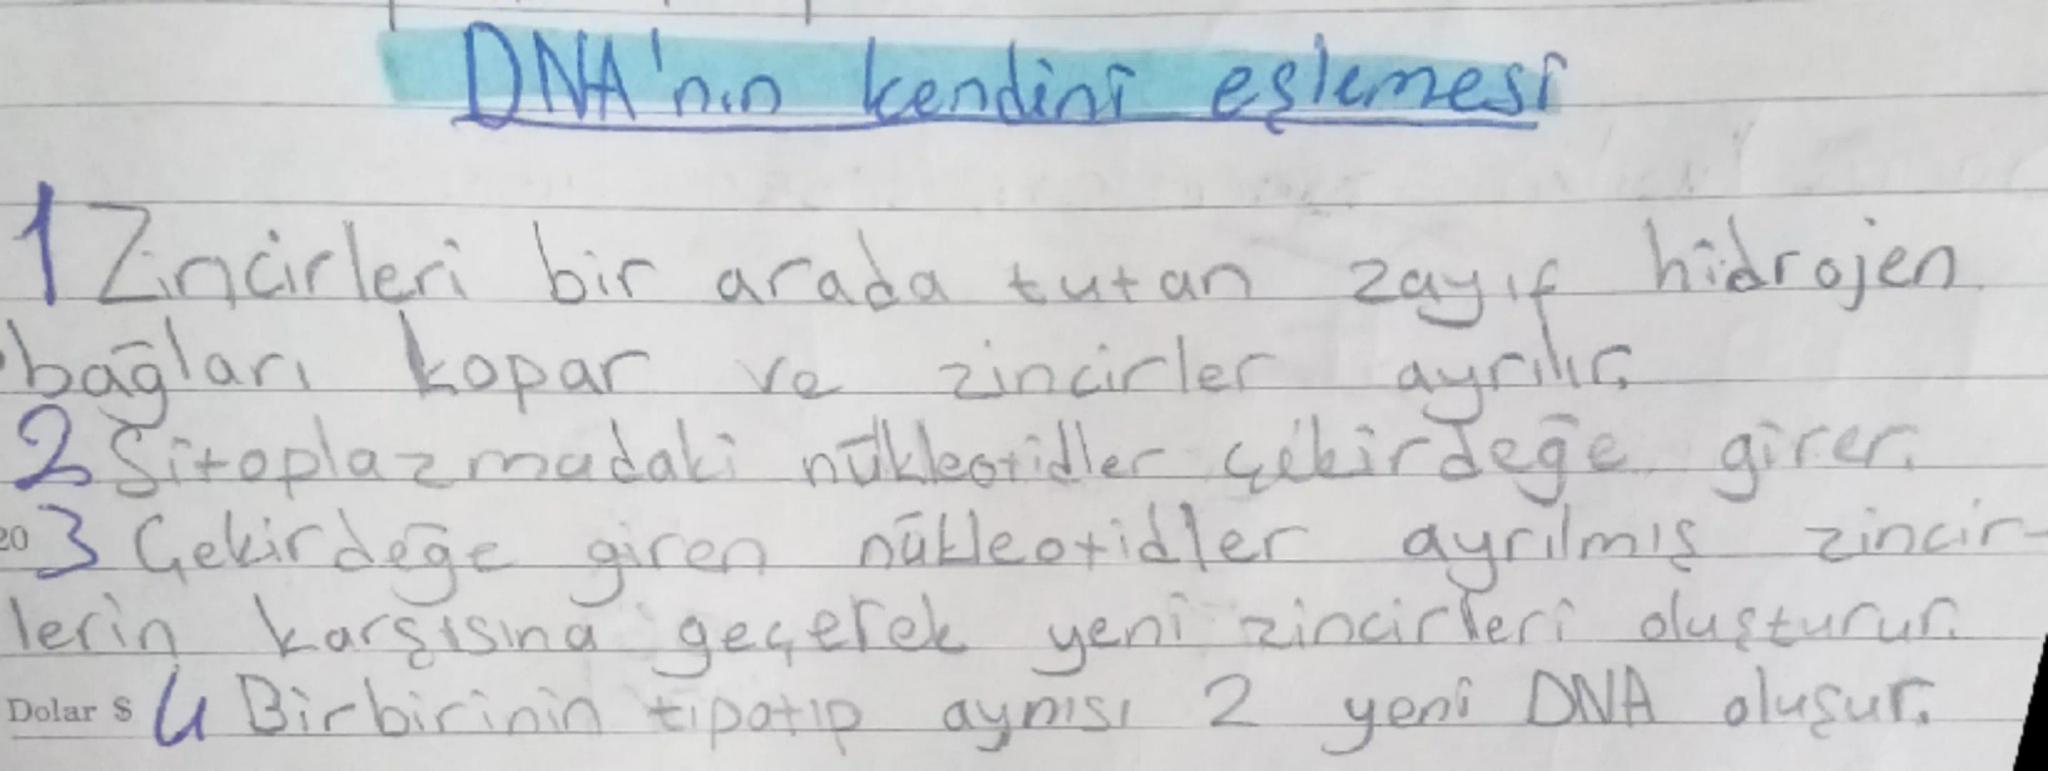 DNA'nın kendini eşlemesi
1 Zincirleri bir arada tutan zayıf hidrojen
bağları kopar ve zincirler ayrılır.
2 Sitoplazmadaki nükleotidler çekirdeğe girer.
20 3 Çekirdeğe giren nükleotidler ayrılmış zincir-
lerin karşısına geçerek yeni zincirleri oluşturur.
Dolar $ 4 Birbirinin tıpatıp aynısı 2 yeni DNA oluşur.